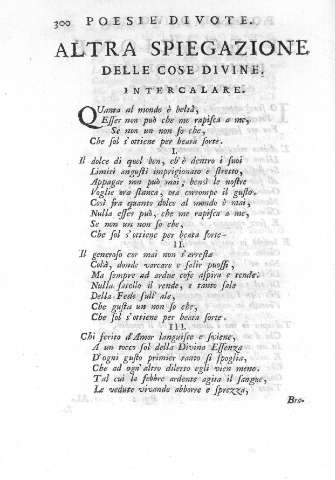 300 POESIE DIVOTE.
ALTRA SPIEGAZIONE
DELLE COSE DIVINE.
INTERCALARE.
Quanta al mondo è beltà,
Esser non può che me rapisca a me,
Se non un non so che,
Che sol s'ottiene per beata sorte.
I.
Il dolce di quel ben, ch'è dentro i suoi
Limiti angusti imprigionato e stretto,
Appagar non può mai; bensì le nostre
Voglie ora stanca, ora corrompe il gusto.
Così fra quanto dolce al mondo è mai,
Nulla esser può, che me rapisca a me,
Se non un non so che,
Che sol s'ottiene per beata sorte.
II.
Il generoso cor mai non s'arresta
Colà, donde varcare e salir puossi,
Ma sempre ad ardue cose aspira e tende.
Nulla satollo il rende, e tanto sale
Della Fede sull'ala,
Che gusta un non so che,
Che sol s'ottiene per beata sorte.
III.
Chi ferito d'Amor languisce e sviene,
A un tocco sol della Divina Essenza
D'ogni gusto primier tanto si spoglia,
Che ad ogn'altro diletto egli vien meno.
Tal cui le febbre ardente agita il sangue,
Le vedute vivande abborre e sprezza,
Bra-